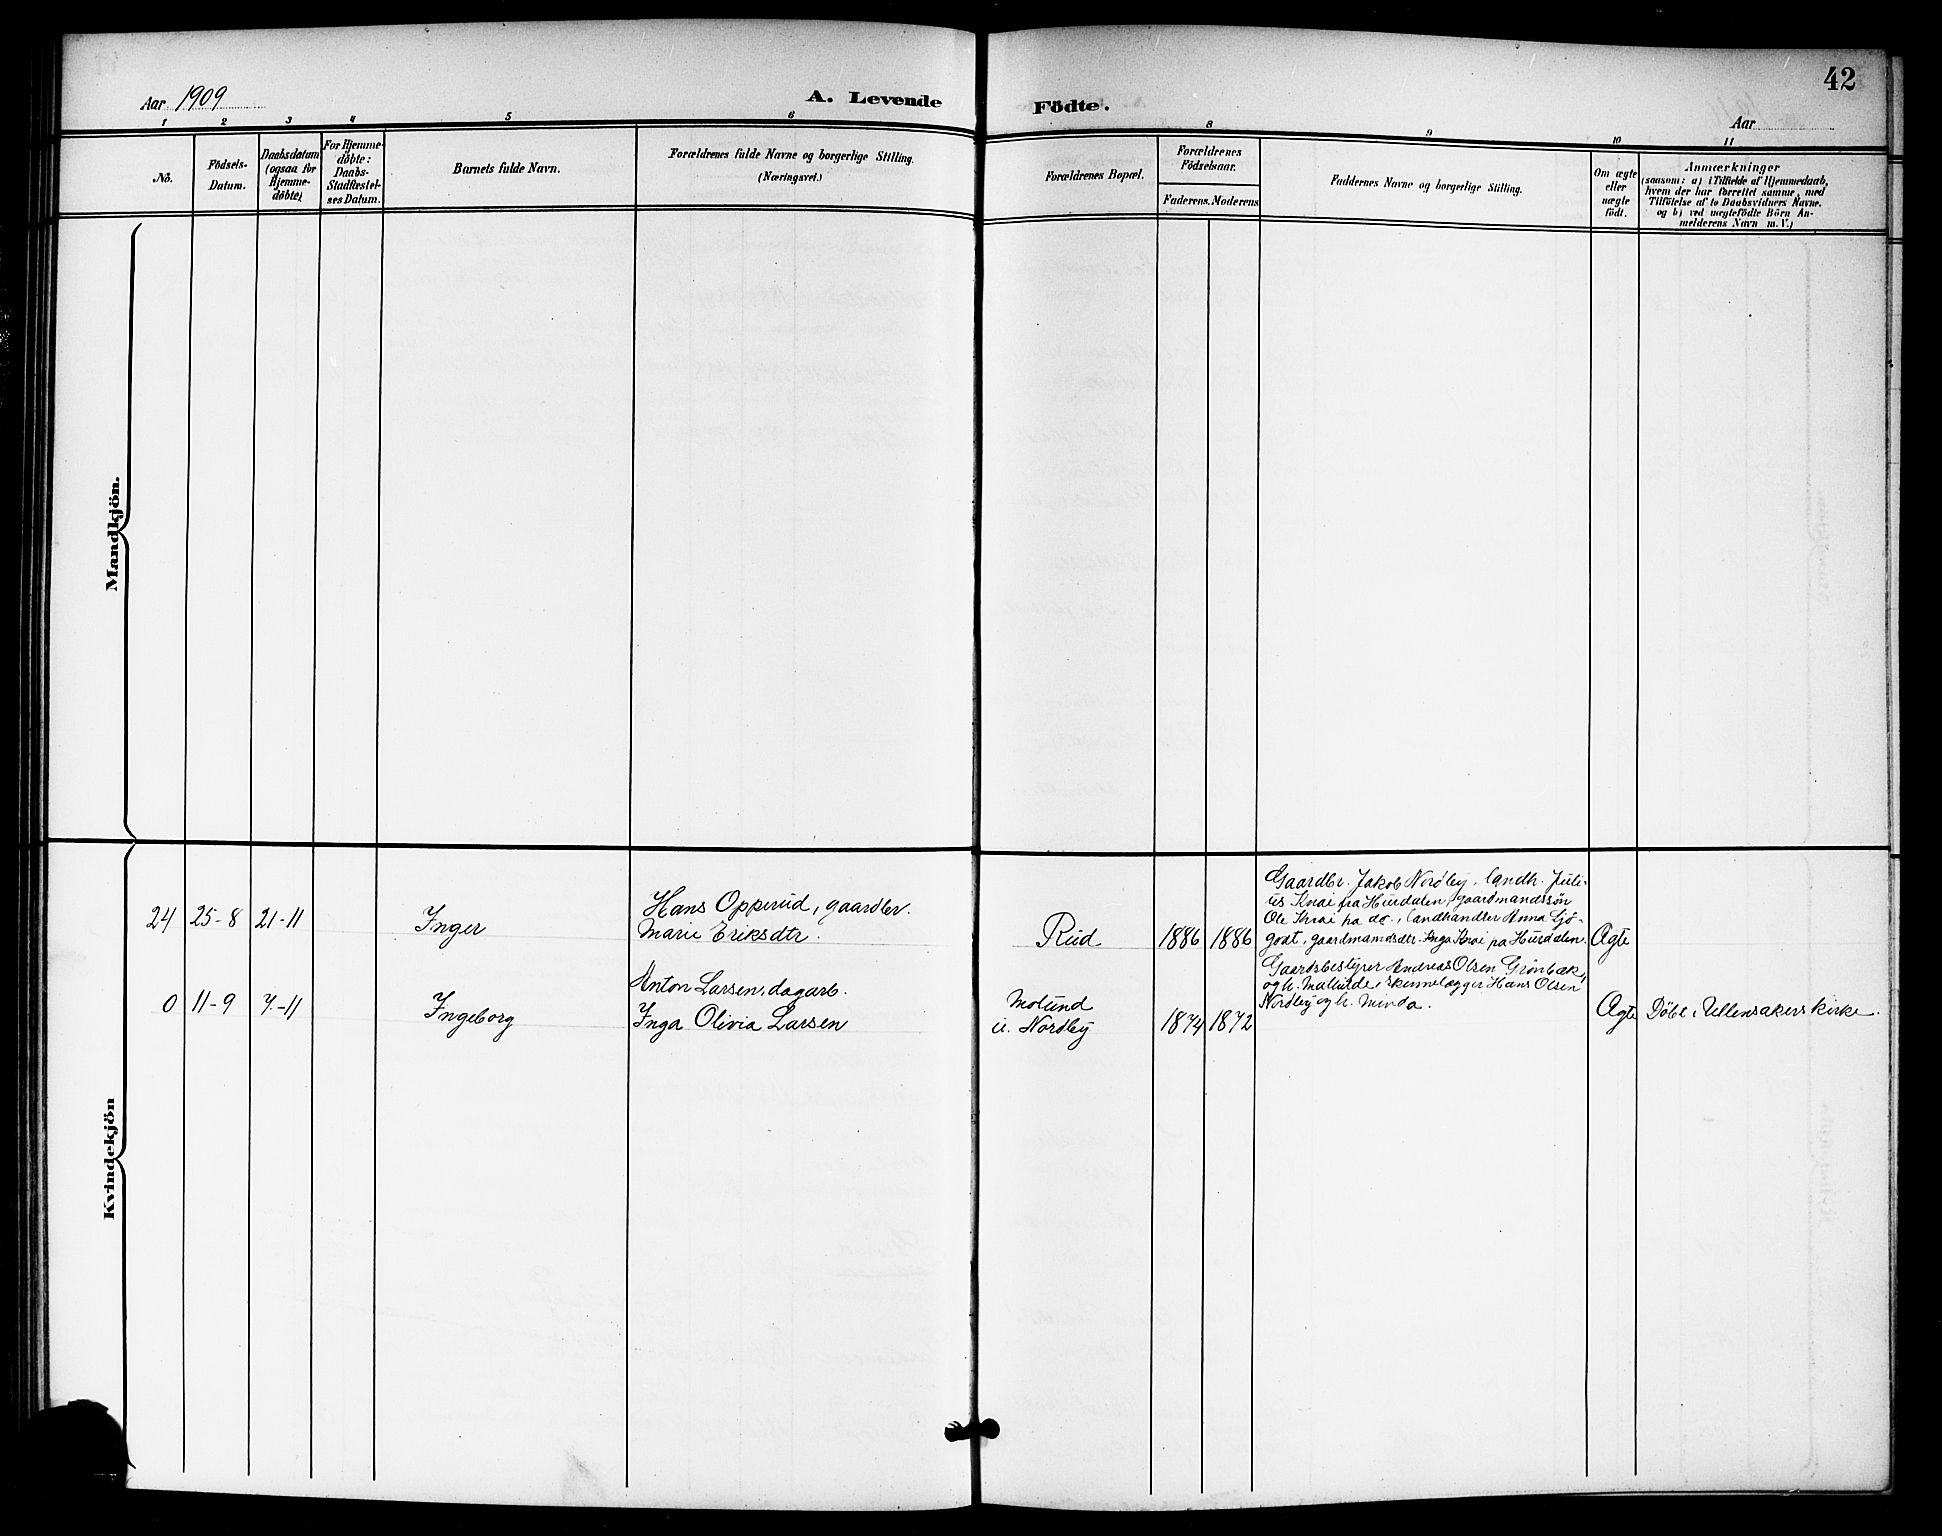 42
Aar 1909
A. Levende
Födte.
Aar
1 2 3 4 5 6 8 9 10 11
No.
Födsels-
Datum.
Daabsdatum
(ogsaa for
Hjemme-
døbte)
For Hjemme-
døbte:
Daabs-
Stadfæstel-
ses Datum.
Barnets fulde Navn.
Forældrenes fulde Navne og borgerlige Stilling.
(Næringsvei.)
Forældrenes Bopæl.
Forældrenes
Födselsaar.
Faderens. Moderens
Faddernes Navne og borgerlige Stilling.
Om ægte
eller
uægte
födt.
Anmærkninger
(saasom: a) i Tilfælde af Hjemmedaab,
hvem der har forrettet samme, med
Tilföielse af to Daabsvidners Navne.
og b) ved uægtefödte Börn An-
melderens Navn m. V.)
Mandkjön.
Kvindekjön
24 25-8 21-11
Inger
Hans Opperud, gaardbr.
Marie Eriksdtr.
Rud
1886 1886
Gaardbr. Jakob Nordby, landh. Juli-
us fra Hurdalen, gaardmandssøn
Ole pa do., landhandler Anna
godt, gaardmandsdtr. Inga pa Hurdalen.
Ægte
0 11-9 7-11
Ingeborg
Anton Larsen, dagarb.
Inga Olivia Larsen
Molund
u. Nordby
1874 1872
Gaardsbestyrer Andreas Olsen Grønbæk,
og h. Mathilde, skinnelægger Hans Olsen
Nordby og h. Minda.
Ægte
Döbt i Ullensakers kirke.